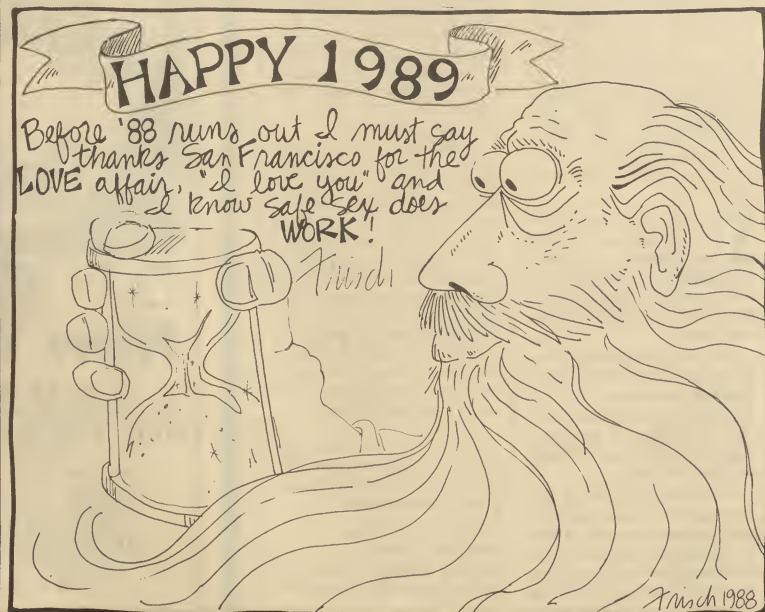 HAPPY 1989
Before '88 runs out I must say
thanks San Francisco for the
LOVE affair, "I love you" and
I know safe sex does
WORK!
Frisch
Frisch 1988